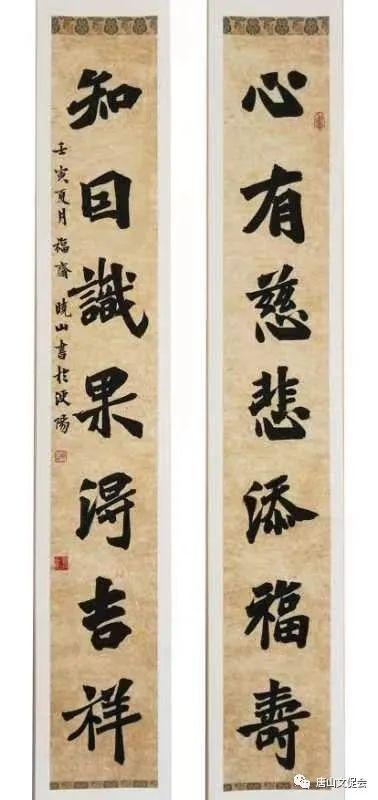 心有慈悲添福壽
知囙識果淂吉祥
壬寅夏月福齋曉山書於浭陽
唐山文促会